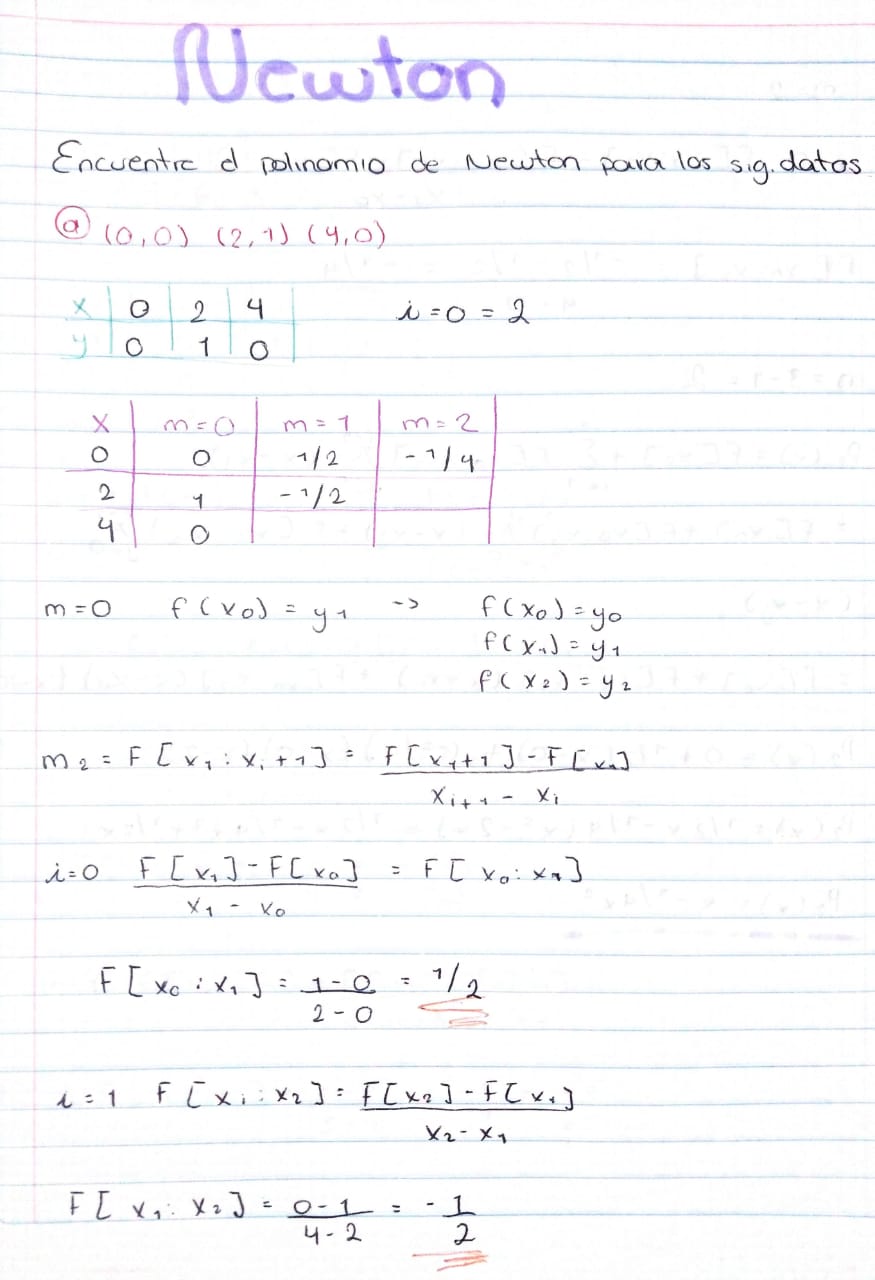 Newton
Encuentre el polinomio de Newton para los sig. datos
ⓐ (0,0) (2,1) (4,0)
x | 0 | 2 | 4 i = 0 = 2
y | 0 | 1 | 0
x | m=0 | m=1 | m=2
0 | 0 | 1/2 | -1/4
2 | 1 | -1/2
4 | 0
m=0 f(x0) = y1 -> f(x0)=y0
f(x1)=y1
f(x2)=y2
m2 = F[x1 : xi+1] = F[x1+1]-F[x1]
xi+1 - xi
i=0 F[x1]-F[x0] = F[x0:x1]
x1 - x0
F[x0 : x1] = 1-0 = 1/2
2-0
i=1 F[xi : x2] = F[x2]-F[x1]
x2-x1
F[x1 : x2] = 0-1 = -1
4-2 2